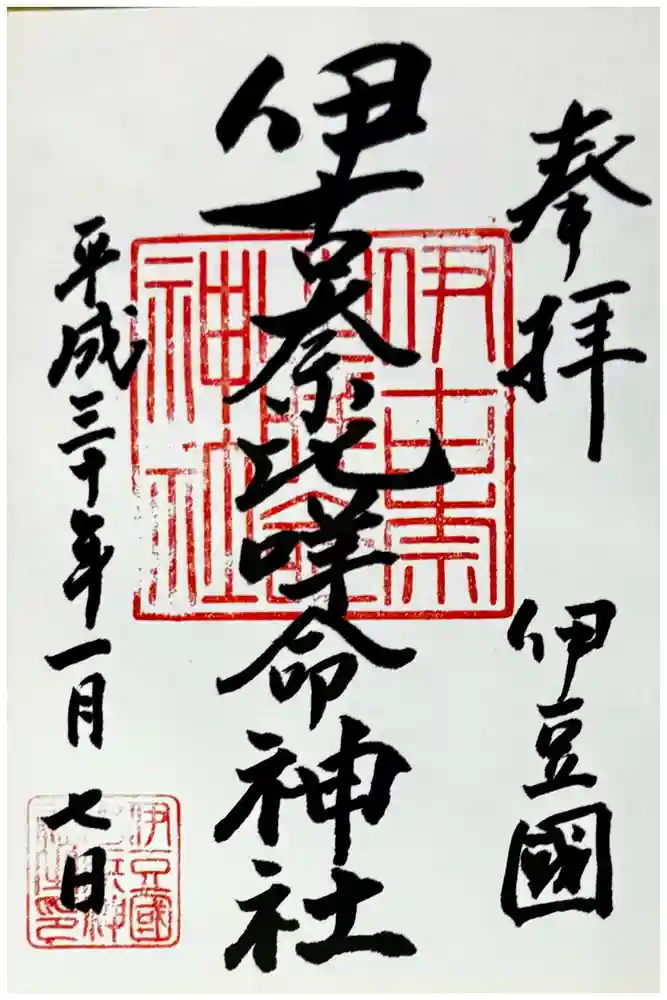 奉拝
伊豆國
伊古奈比咩命神社
平成三十年一月七日
伊古奈
比咩命
神社